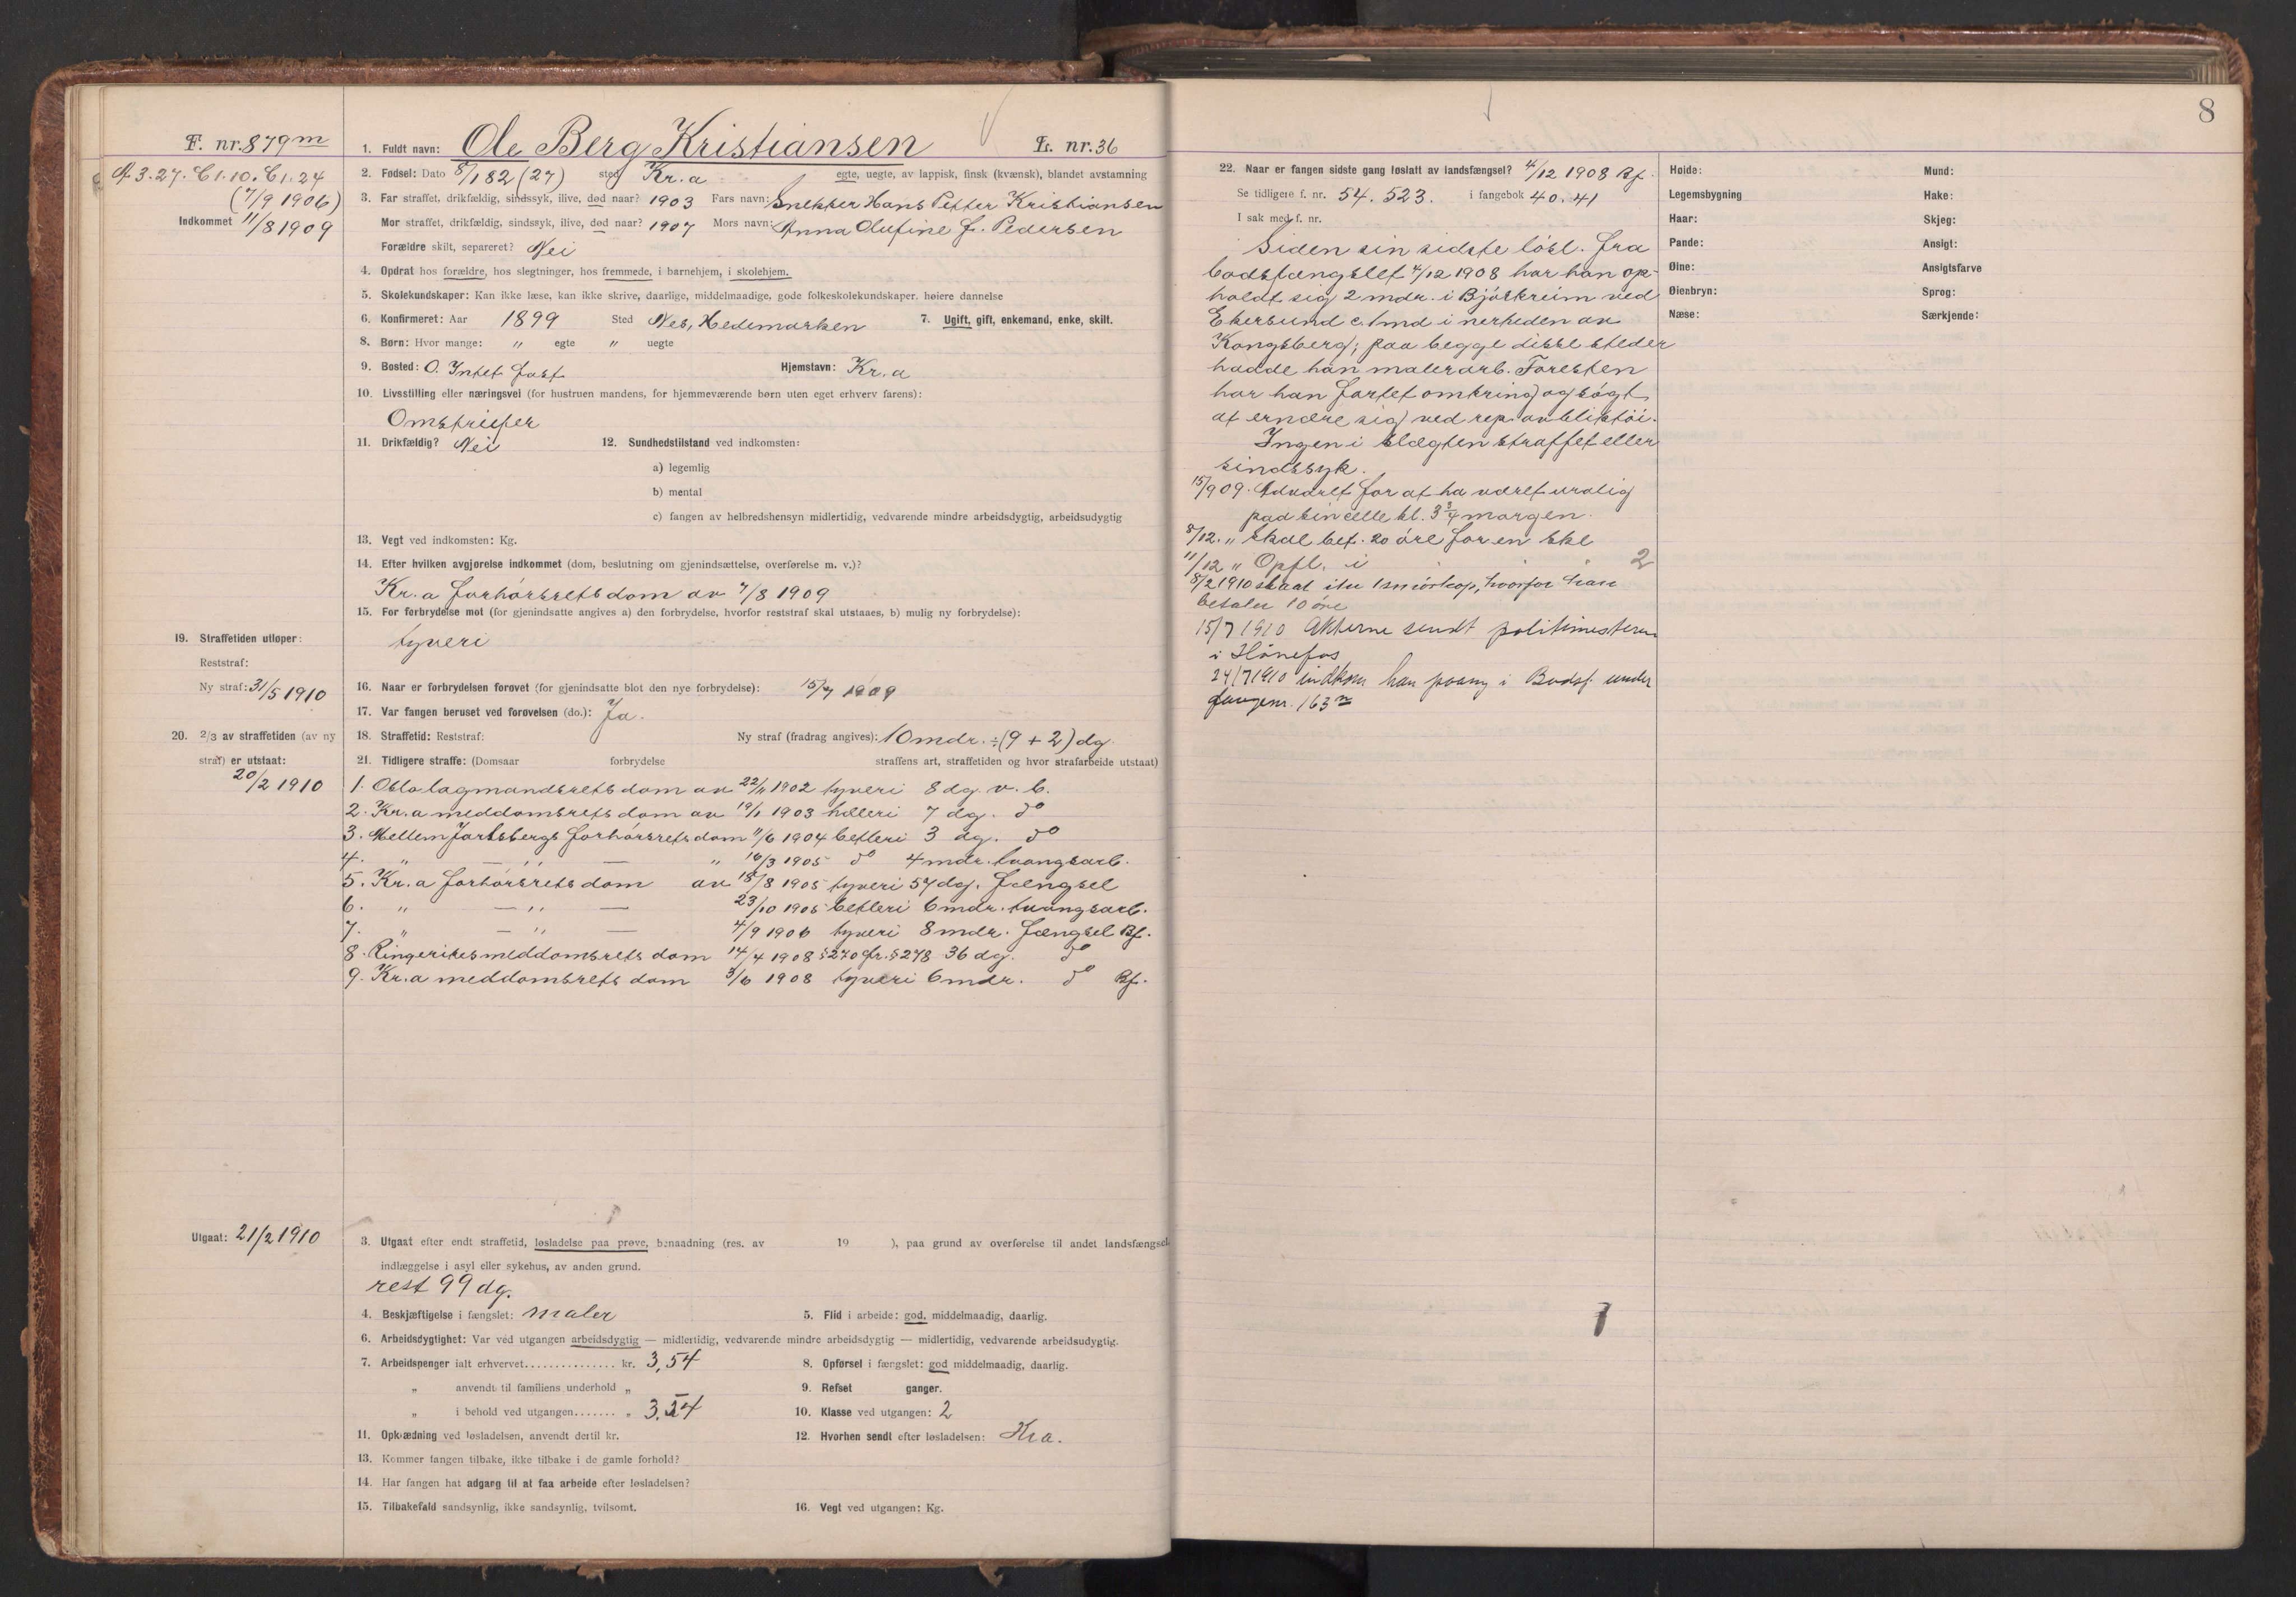 8
F. nr. 879 m
1. Fuldt navn: Ole Berg Kristiansen L. nr. 36
A. 3. 27. C 1. 10. C 1. 24
(7/9 1906)
Indkommet 11/8 1909
2. Fødsel: Dato 8/1 82 (27) sted Kr.a egte, uegte, av lappisk, finsk (kvænsk), blandet avstamning
3. Far straffet, drikfældig, sindssyk, ilive, død naar? 1903 Fars navn: Snekker Hans Petter Kristiansen
Mor straffet, drikfældig, sindssyk, ilive, død naar? 1907 Mors navn: Anna Olufine f. Pedersen
Forældre skilt, separeret? Nei
4. Opdrat hos forældre, hos slegtninger, hos fremmede, i barnehjem, i skolehjem.
5. Skolekundskaper: Kan ikke læse, kan ikke skrive, daarlige, middelmaadige, gode folkeskolekundskaper. høiere dannelse
6. Konfirmeret: Aar 1899 Sted Nes, Hedemarken 7. Ugift, gift, enkemand, enke, skilt.
8. Børn: Hvor mange: " egte " uegte
9. Bosted: O. Intet fast Hjemstavn: Kr.a
10. Livsstilling eller næringsvei (for hustruen mandens, for hjemmeværende børn uten eget erhverv farens):
Omstreifer
11. Drikfældig? Nei 12. Sundhedstilstand ved indkomsten:
a) legemlig
b) mental
c) fangen av helbredshensyn midlertidig, vedvarende mindre arbeidsdygtig, arbeidsudygtig
13. Vegt ved indkomsten: Kg.
14. Efter hvilken avgjørelse indkommet (dom, beslutning om gjenindsættelse, overførelse m. v.)?
Kr.a forhørsrets dom av 7/8 1909
15. For forbrydelse mot (for gjenindsatte angives a) den forbrydelse, hvorfor reststraf skal utstaaes, b) mulig ny forbrydelse):
tyveri
19. Straffetiden utløper:
Reststraf:
Ny straf: 31/5 1910
16. Naar er forbrydelsen forøvet (for gjenindsatte blot den nye forbrydelse): 15/7 1909
17. Var fangen beruset ved forøvelsen (do.): Ja.
20. 2/3 av straffetiden (av ny
straf) er utstaat:
20/2 1910
18. Straffetid: Reststraf: Ny straf (fradrag angives): 10 mdr. ÷ (9 + 2) dg.
21. Tidligere straffe: (Domsaar forbrydelse straffens art, straffetiden og hvor strafarbeide utstaat)
1. Oslo lagmandsrets dom av 22/11 1902 tyveri 8 dg. v. b.
2. Kr.a meddomsrets dom av 19/1 1903 hæleri 7 dg. do
3. Mellem Jarlsbergs forhørsrets dom 11/6 1904 betleri 3 dg. do
4. " — " — " 16/3 1905 do 4 mdr. tvangsarb.
5. Kr.a forhørsrets dom av 18/8 1905 tyveri 57 dg. fængsel
6. " — " — 23/10 1905 betleri 6 mdr. tvangsarb.
7. " — " — 4/9 1906 tyveri 8 mdr. fængsel Bf.
8. Ringerikes meddomsrets dom 14/4 1908 § 270 jfr. § 278 36 dg. do
9. Kr.a meddomsrets dom 3/6 1908 tyveri 6 mdr. do Bf.
Utgaat: 21/2 1910
3. Utgaat efter endt straffetid, løsladelse paa prøve, benaadning (res. av 19 ), paa grund av overførelse til andet landsfængsel
indlæggelse i asyl eller sykehus, av anden grund.
rest 99 dg.
4. Beskjæftigelse i fængslet: maler 5. Flid i arbeide: god, middelmaadig, daarlig.
6. Arbeidsdygtighet: Var ved utgangen arbeidsdygtig — midlertidig, vedvarende mindre arbeidsdygtig — midlertidig, vedvarende arbeidsudygtig.
7. Arbeidspenger ialt erhvervet............... kr. 3,54 8. Opførsel i fængslet: god middelmaadig, daarlig.
" anvendt til familiens underhold " 9. Refset ganger.
" i behold ved utgangen....... " 3,54 10. Klasse ved utgangen: 2
11. Opklædning ved løsladelsen, anvendt dertil kr. 12. Hvorhen sendt efter løsladelsen: Kra.
13. Kommer fangen tilbake, ikke tilbake i de gamle forhold?
14. Har fangen hat adgang til at faa arbeide efter løsladelsen?
15. Tilbakefald sandsynlig, ikke sandsynlig, tvilsomt. 16. Vegt ved utgangen: Kg.
22. Naar er fangen sidste gang løslatt av landsfængsel? 4/12 1908 Bf.
Se tidligere f. nr. 54. 523. i fangebok 40. 41
I sak med f. nr.
Siden sin sidste løsl. fra
bodsfængslet 4/12 1908 har han op-
holdt sig 2 mdr. i Bjerkreim ved
Ekersund c. 1 md i nærheden av
Kongsberg; paa begge disse steder
hadde han malerarb. Foresten
har han fartet omkring og søgt
at ernære sig ved rep. av bliktøi.
Ingen i slægten straffet eller
sindssyk.
15/9 09. Advaret for at ha været urolig
paa sin celle kl. 3 3/4 morgen.
8/12. " Skal bet. 20 øre for en ske
11/12 " Opfl. i 2
8/2 1910 slaat itu 1 smørkop, hvorfor han
betaler 10 øre
15/7 1910 Akterne sendt politimesteren
i Hønefos
24/7 1910 indkom han paany i Bodsf. under
fangenr. 163 n
Høide:
Legemsbygning
Haar:
Pande:
Øine:
Øienbryn:
Næse:
Mund:
Hake:
Skjeg:
Ansigt:
Ansigtsfarve
Sprog:
Særkjende: